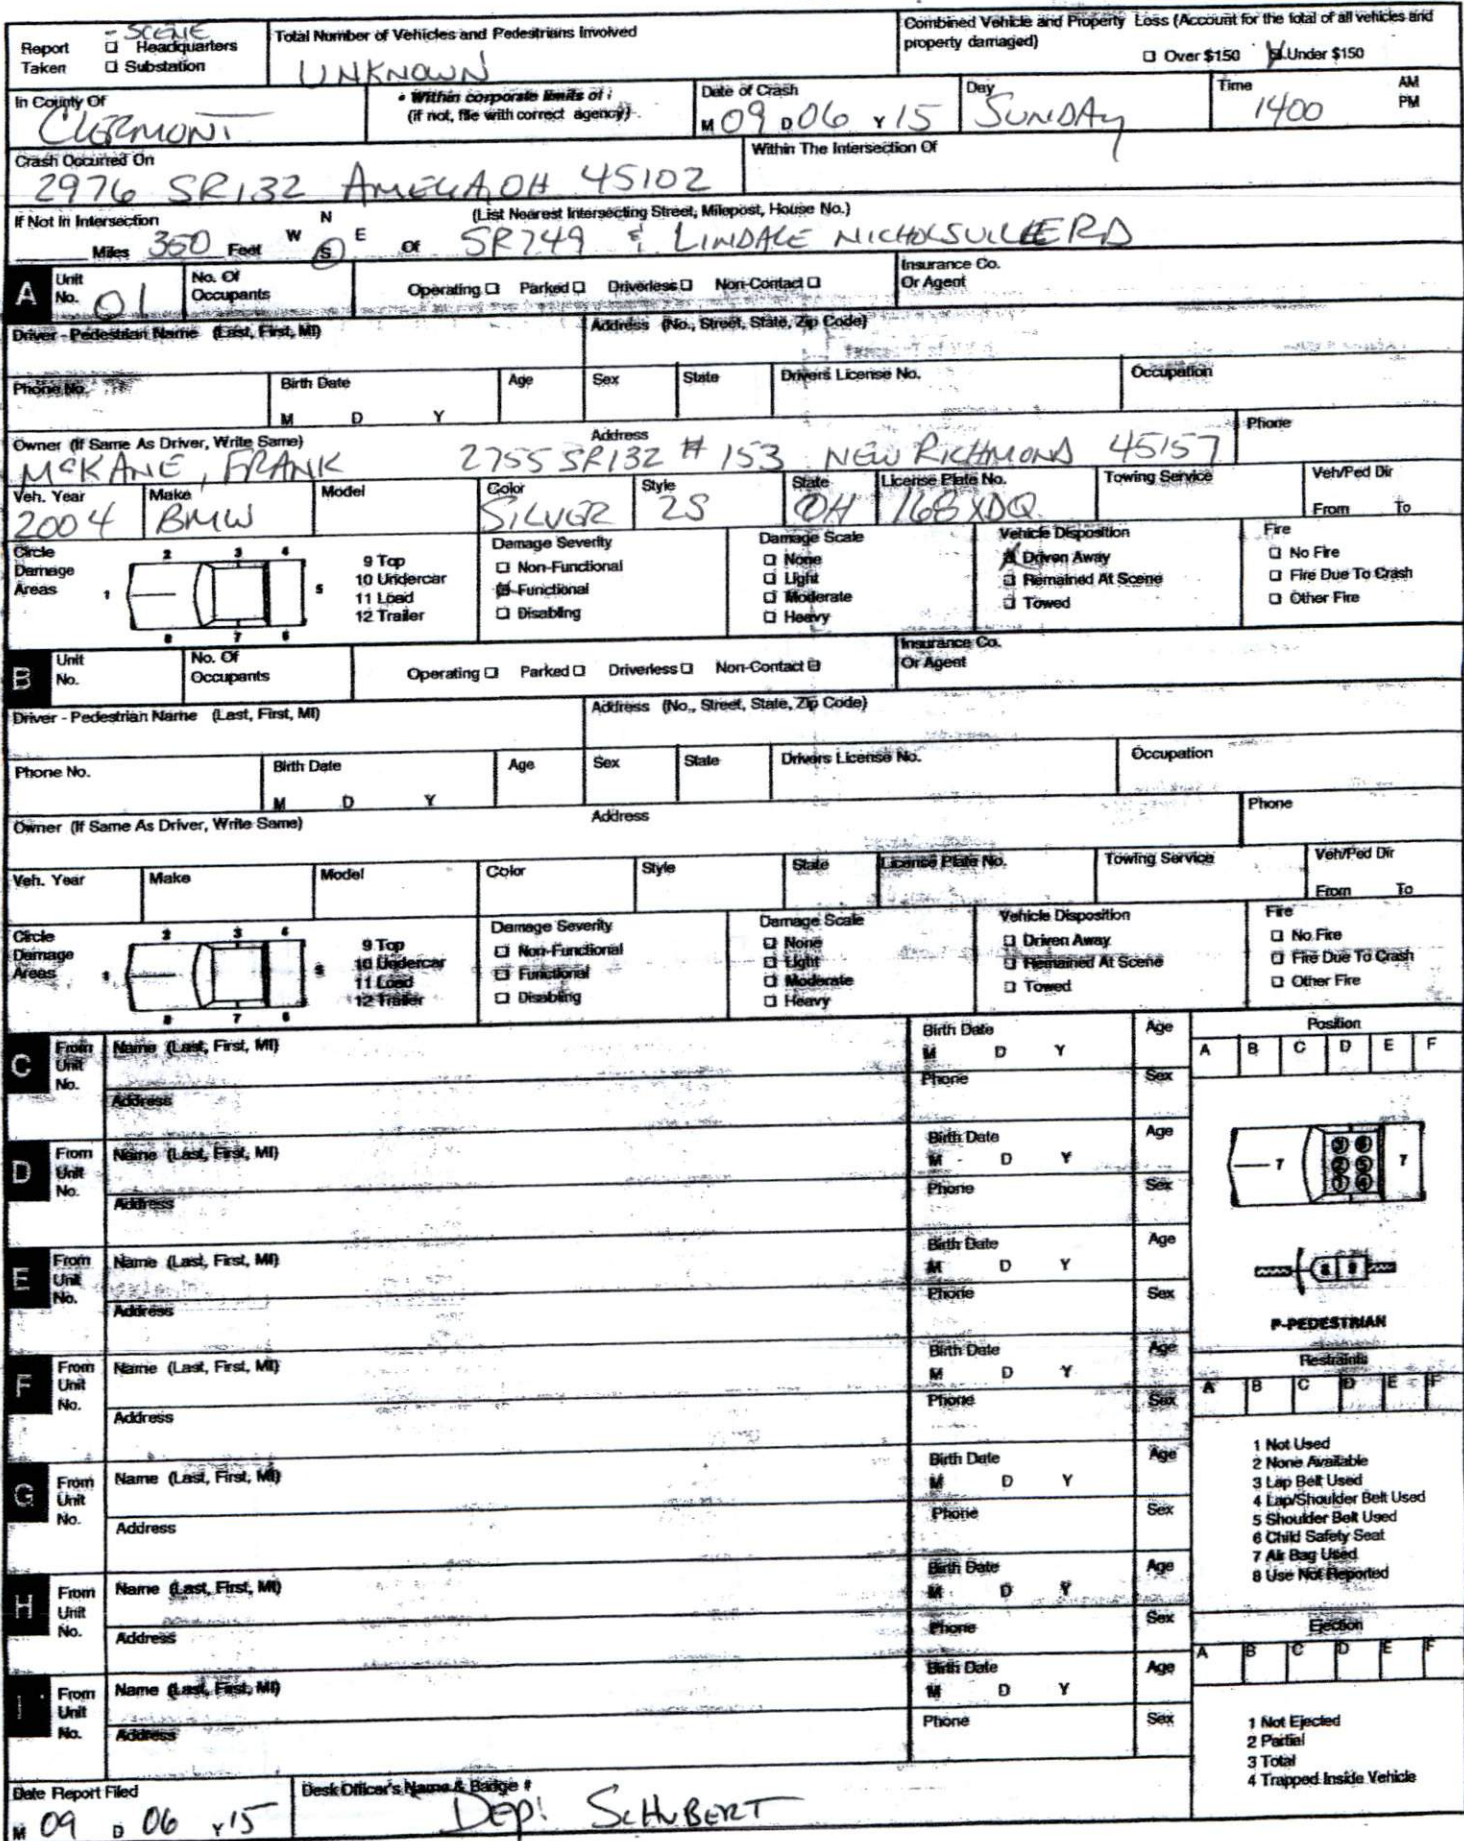 - SCENE
Report Taken ☐ Headquarters ☐ Substation
Total Number of Vehicles and Pedestrians Involved
UNKNOWN
Combined Vehicle and Property Loss (Account for the total of all vehicles and property damaged)
☐ Over $150 ☒ Under $150
In County Of
CLERMONT
• Within corporate limits of :
(if not, file with correct agency)
Date of Crash
M 09 D 06 Y 15
Day
SUNDAY
Time
1400
AM
PM
Crash Occurred On
2976 SR132 AMELIA OH 45102
Within The Intersection Of
If Not In Intersection
(List Nearest Intersecting Street, Milepost, House No.)
Miles 350 Feet N W E S Of SR749 & LINDALE NICHOLSVILLE RD
A Unit No. 01
No. Of Occupants
Operating ☐ Parked ☐ Driverless ☐ Non-Contact ☐
Insurance Co. Or Agent
Driver - Pedestrian Name (Last, First, MI)
Address (No., Street, State, Zip Code)
Phone No.
Birth Date
M D Y
Age
Sex
State
Drivers License No.
Occupation
Owner (If Same As Driver, Write Same)
Address
Phone
McKANE, FRANK 2755 SR132 # 153 NEW RICHMOND 45157
Veh. Year
2004
Make
BMW
Model
Color
SILVER
Style
2S
State
OH
License Plate No.
168XDQ
Towing Service
Veh/Ped Dir
From To
Circle Damage Areas
1 2 3 4 5 6 7 8
9 Top
10 Undercar
11 Load
12 Trailer
Damage Severity
☐ Non-Functional
☒ Functional
☐ Disabling
Damage Scale
☐ None
☐ Light
☐ Moderate
☐ Heavy
Vehicle Disposition
☒ Driven Away
☐ Remained At Scene
☐ Towed
Fire
☐ No Fire
☐ Fire Due To Crash
☐ Other Fire
B Unit No.
No. Of Occupants
Operating ☐ Parked ☐ Driverless ☐ Non-Contact ☐
Insurance Co. Or Agent
Driver - Pedestrian Name (Last, First, MI)
Address (No., Street, State, Zip Code)
Phone No.
Birth Date
M D Y
Age
Sex
State
Drivers License No.
Occupation
Owner (If Same As Driver, Write Same)
Address
Phone
Veh. Year
Make
Model
Color
Style
State
License Plate No.
Towing Service
Veh/Ped Dir
From To
Circle Damage Areas
1 2 3 4 5 6 7 8
9 Top
10 Undercar
11 Load
12 Trailer
Damage Severity
☐ Non-Functional
☐ Functional
☐ Disabling
Damage Scale
☐ None
☐ Light
☐ Moderate
☐ Heavy
Vehicle Disposition
☐ Driven Away
☐ Remained At Scene
☐ Towed
Fire
☐ No Fire
☐ Fire Due To Crash
☐ Other Fire
C From Unit No.
Name (Last, First, MI)
Address
Birth Date
M D Y
Age
Phone
Sex
D From Unit No.
Name (Last, First, MI)
Address
Birth Date
M D Y
Age
Phone
Sex
E From Unit No.
Name (Last, First, MI)
Address
Birth Date
M D Y
Age
Phone
Sex
F From Unit No.
Name (Last, First, MI)
Address
Birth Date
M D Y
Age
Phone
Sex
G From Unit No.
Name (Last, First, MI)
Address
Birth Date
M D Y
Age
Phone
Sex
H From Unit No.
Name (Last, First, MI)
Address
Birth Date
M D Y
Age
Phone
Sex
I From Unit No.
Name (Last, First, MI)
Address
Birth Date
M D Y
Age
Phone
Sex
Position
A B C D E F
7 7
8 9
P-PEDESTRIAN
Restraints
A B C D E F
1 Not Used
2 None Available
3 Lap Belt Used
4 Lap/Shoulder Belt Used
5 Shoulder Belt Used
6 Child Safety Seat
7 Air Bag Used
8 Use Not Reported
Ejection
A B C D E F
1 Not Ejected
2 Partial
3 Total
4 Trapped Inside Vehicle
Date Report Filed
M 09 D 06 Y 15
Desk Officer's Name & Badge #
DEP. SCHUBERT